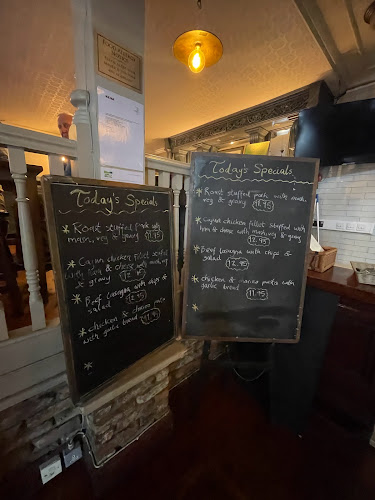 Today's Specials
* Roast stuffed pork with
mash, veg & gravy 11.95
* Cajun chicken fillet stuffed
with ham & cheese with mash, veg
& gravy 12.95
* Beef Lasagna with chips &
salad 12.95
* chicken & chorizo pasta
with garlic bread 11.95
*
Today's Specials
* Roast stuffed pork with mash,
veg & gravy 11.95
* Cajun chicken fillet stuffed with
ham & cheese with mash, veg & gravy
12.95
* Beef Lasagna with chips &
salad 12.95
* chicken & chorizo pasta with
garlic bread 11.95
*